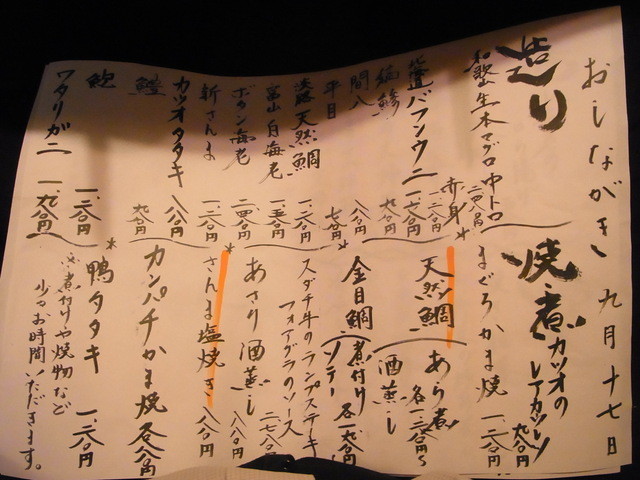 おしながき 九月十七日
造り
和歌山生本マグロ 中トロ 二四八〇円
赤身 一二八〇円
北海道バフンウニ 一六八〇円
縞鯵 九八〇円
間八 八八〇円
平目 七八〇円
淡路 天然鯛 一二八〇円
富山 白海老 一一五〇円
ボタン海老 二四〇〇円
新さんま 一二八〇円
カツオタタキ 八八〇円
鱧 九八〇円
鮑 一二八〇円
ワタリガニ 一九八〇円
焼・煮
カツオのレアカツレツ 九八〇円
まぐろかま焼 一二八〇円
天然鯛 あら煮 酒蒸し 各一二八〇円〜
金目鯛 煮付け ソテー 各一九八〇円
スダチ牛のランプステーキ
フォアグラのソース 二七八〇円
あさり酒蒸し 八八〇円
さんま塩焼き 八八〇円
カンパチかま焼 各八八〇円
鴨タタキ 一二八〇円
※煮付けや焼物など
少々お時間いただきます。